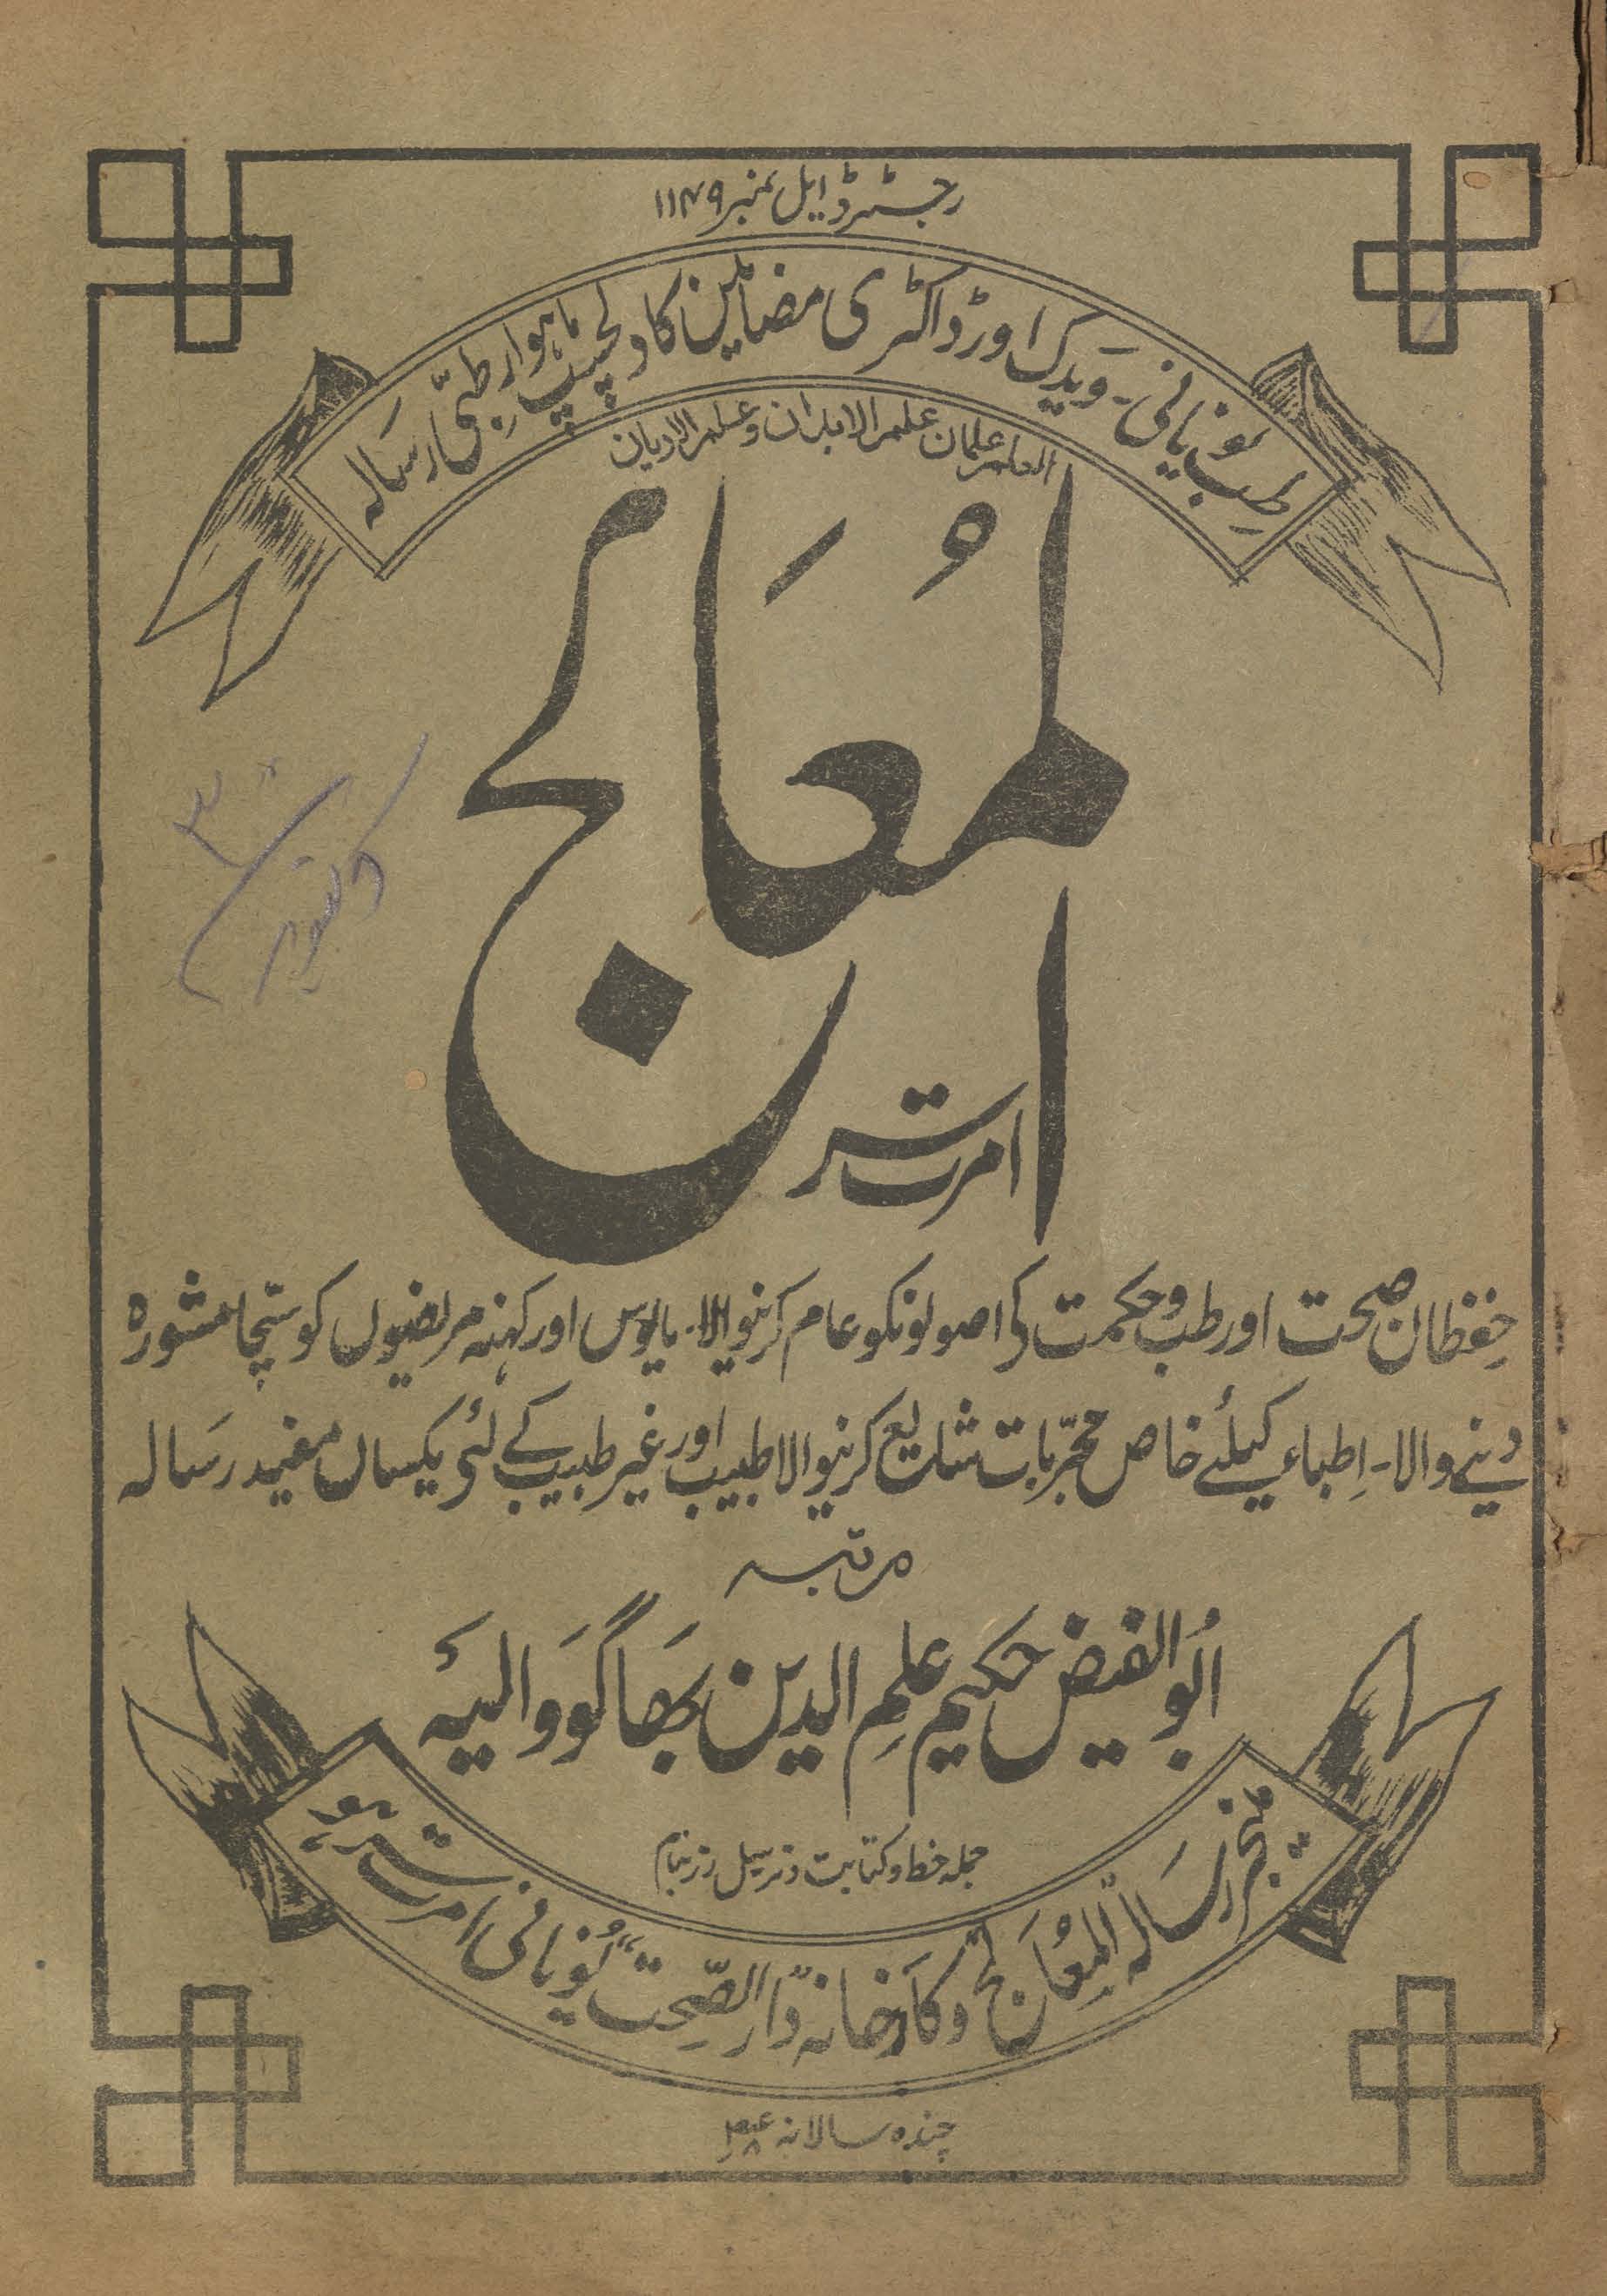 رجسٹرڈ ایل نمبر ۱۱۴۹
طب یونانی۔ ویدک اور ڈاکٹری مضامین کا دلچسپ ماہوار طبّی رسالہ
العلم علمان علم الابدان وعلم الادیان
المعالج
امرت سر
حفظان صحت اور طب و حکمت کے اصولونکو عام کرنیوالا۔ مایوس اور کہنہ مریضوں کو سچّا مشورہ
دینے والا۔ اطباء کیلئے خاص مجرّبات شایع کرنیوالا طبیب اور غیر طبیب کے لئے یکساں مفید رسالہ
مرتبہ
ابو الفیض حکیم علم الدین بھاگووالیہ
جملہ خط و کتابت و ترسیل زر بنام
منیجر رسالہ "المعالج" و کارخانہ "دار الصحت" یونانی امرت سر ہو
چندہ سالانہ
اکتوبر